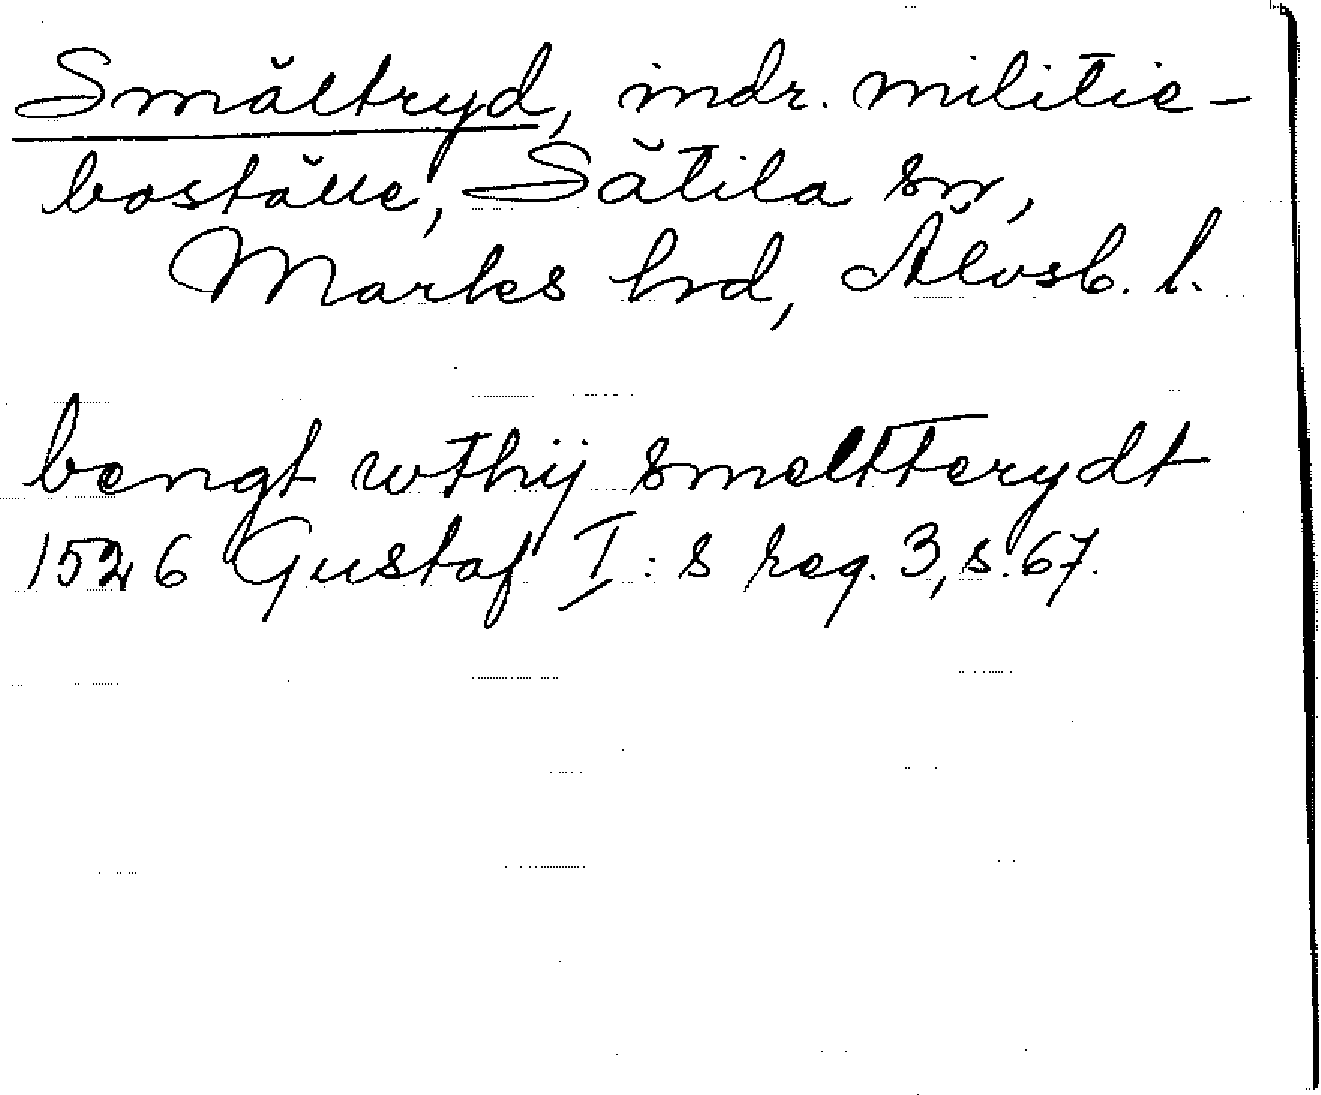 Smältryd, indr. militie-
boställe, Sätila sn,
Marks hrd, Älvsb. l.
bengt wthij smeltterydt
1526 Gustaf I:s reg. 3, s. 67.